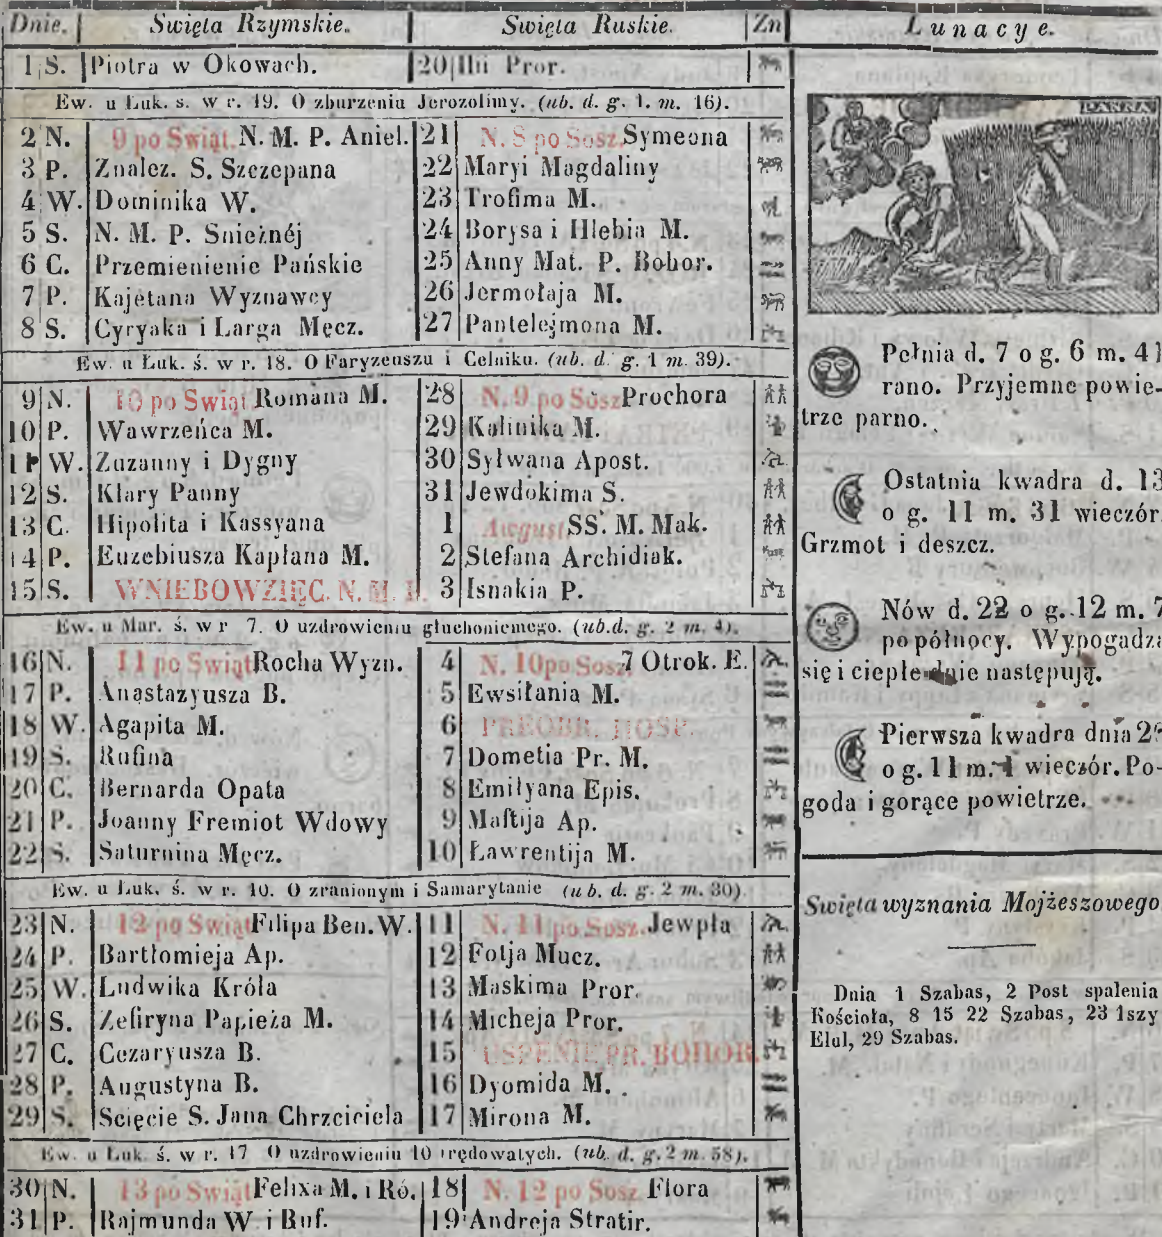 Dnie. Swięta Rzymskie. Swięta Ruskie. Zn
1 S. Piotra w Okowach. 20 Ilii Pror.
Ew. u Łuk. s. w r. 19. O zburzeniu Jerozolimy. (ub. d. g. 1. m. 16).
2 N. 9 po Swiąt. N. M. P. Aniel. 21 N. 8 po Sosz. Symeona
3 P. Znalez. S. Szczepana 22 Maryi Magdaliny
4 W. Dominika W. 23 Trofima M.
5 S. N. M. P. Snieżnéj 24 Borysa i Hlebia M.
6 C. Przemienienie Pańskie 25 Anny Mat. P. Bohor.
7 P. Kajetana Wyznawcy 26 Jermołaja M.
8 S. Cyryaka i Larga Męcz. 27 Pantelejmona M.
Ew. u Łuk. ś. w r. 18. O Faryzeuszu i Celniku. (ub. d. g. 1 m. 39).
9 N. 10 po Swiąt Romana M. 28 N. 9 po Sosz Prochora
10 P. Wawrzeńca M. 29 Kalinika M.
11 W. Zuzanny i Dygny 30 Sylwana Apost.
12 S. Klary Panny 31 Jewdokima S.
13 C. Hipolita i Kassyana 1 August SS. M. Mak.
14 P. Euzebiusza Kapłana M. 2 Stefana Archidiak.
15 S. WNIEBOWZIĘC. N. M. P. 3 Isaakia P.
Ew. u Mar. ś. w r 7. O uzdrowieniu głuchoniemego. (ub. d. g. 2 m. 4).
16 N. 11 po Swiąt Rocha Wyzn. 4 N. 10 po Sosz 7 Otrok. E.
17 P. Anastazyusza B. 5 Ewsiłania M.
18 W. Agapita M. 6 PREOBR. HOSP.
19 S. Rufina 7 Dometia Pr. M.
20 C. Bernarda Opata 8 Emilyana Epis.
21 P. Joanny Fremiot Wdowy 9 Maftija Ap.
22 S. Saturnina Męcz. 10 Ławrentija M.
Ew. u Łuk. ś. w r. 10. O zranionym i Samarytanie (ub. d. g. 2 m. 30).
23 N. 12 po Swiąt Filipa Ben. W. 11 N. 11 po Sosz. Jewpła
24 P. Bartłomieja Ap. 12 Fotja Mucz.
25 W. Ludwika Króla 13 Maskima Pror.
26 S. Zefiryna Papieża M. 14 Micheja Pror.
27 C. Cezaryusza B. 15 USPENIE PR. BOHOR.
28 P. Augustyna B. 16 Dyomida M.
29 S. Scięcie S. Jana Chrzciciela 17 Mirona M.
Ew. u Łuk. ś. w r. 17 O uzdrowieniu 10 trędowatych. (ub. d. g. 2 m. 58).
30 N. 13 po Swiąt Felixa M. i Ró. 18 N. 12 po Sosz Flora
31 P. Rajmunda W. i Buf. 19 Andreja Stratir.
Lunacye.
Pełnia d. 7 o g. 6 m. 41
rano. Przyjemne powie-
trze parno.
Ostatnia kwadra d. 13
o g. 11 m. 31 wieczór.
Grzmot i deszcz.
Nów d. 22 o g. 12 m. 7
po północy. Wypogadza
się i ciepłe dnie następują.
Pierwsza kwadra dnia
o g. 11 m. 1 wieczór. Po-
goda i gorące powietrze.
Swięta wyznania Mojżeszowego
Dnia 1 Szabas, 2 Post spalenia
Kościoła, 8 15 22 Szabas, 23 1szy
Elul, 29 Szabas.